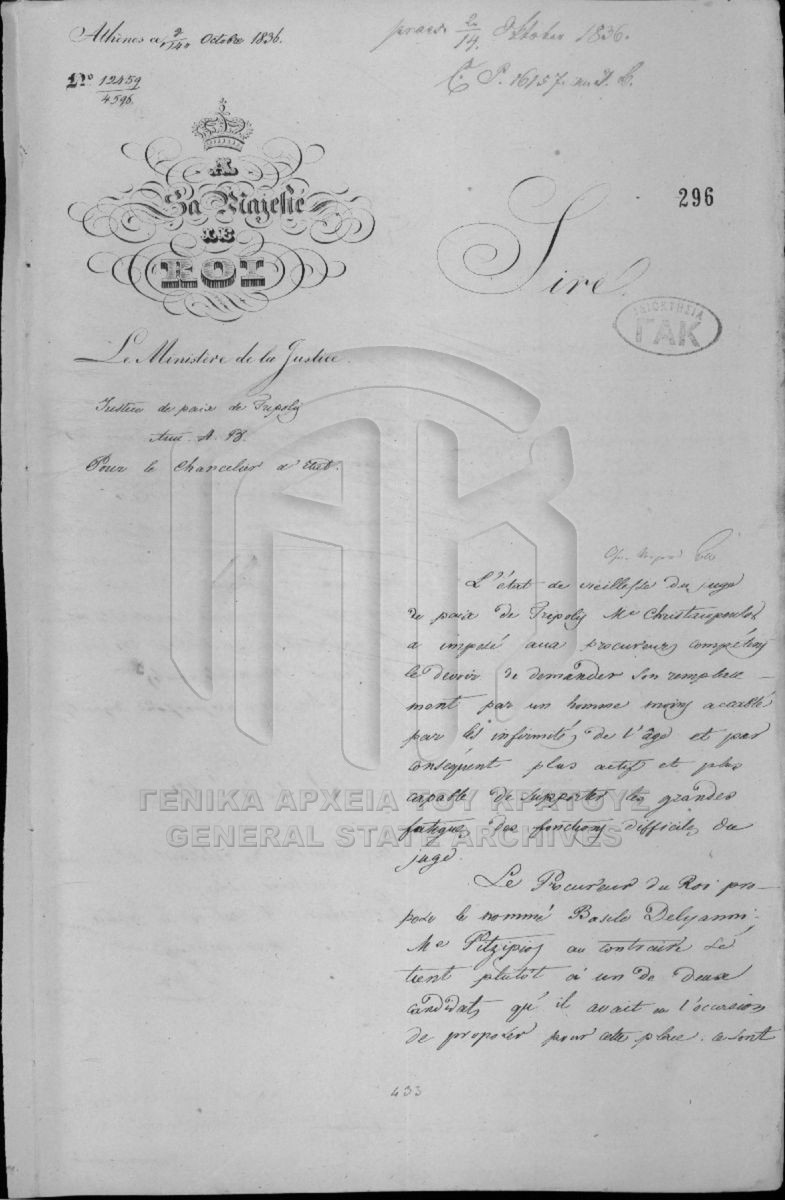 Athènes ce 2/14 Octobre 1836.
praes. 2/14. Oktober 1836.
No 12459/4596
C. P. 16157.
A
Sa Majesté
LE
ROI
296
Sire,
ΙΔΙΟΚΤΗΣΙΑ
ΓΑΚ
Le Ministère de la Justice.
Justice de paix de Tripoly
Ann. A. B.
Pour le Chancelier d'Etat.
L'état de vieillesse du juge
de paix de Tripoly Mr Christacopoulos
a imposé aux procureurs compétens
le devoir de demander son remplace-
ment par un homme moins accablé
par les infirmités de l'âge et par
conséquent plus actif et plus
capable de supporter les grandes
fatigues des fonctions difficiles du
juge.
Le Procureur du Roi pro-
pose le nommé Basile Delyanni.
Mr Pitzipios au contraire se
tient plutôt à un de deux
candidats qu'il avait eu l'occasion
de proposer pour cette place. ce sont
433
ΓΕΝΙΚΑ ΑΡΧΕΙΑ ΤΟΥ ΚΡΑΤΟΥΣ
GENERAL STATE ARCHIVES